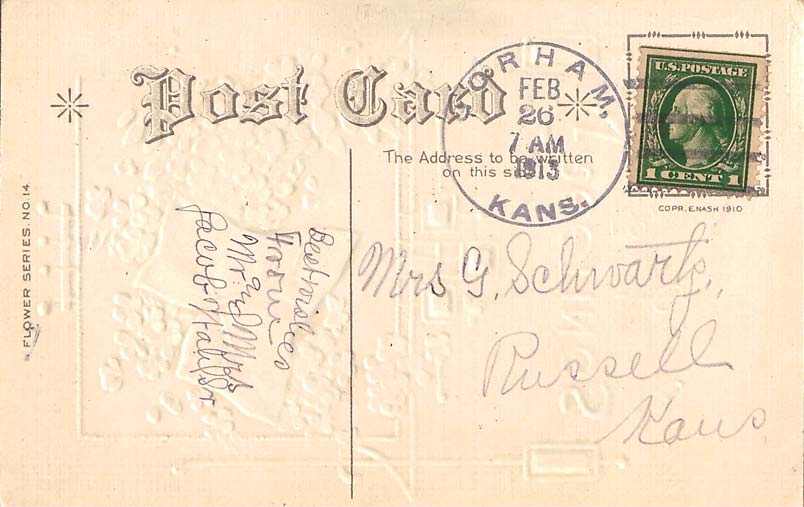 Post Card
GORHAM,
FEB
26
7 AM
1913
KANS.
U.S. POSTAGE
1 CENT 1
The Address to be written
on this side
COPR. E. NASH 1910
FLOWER SERIES. NO. 14
Best wishes
from
Mr and Mrs
Jacob
Mrs G. Schwartz,
Russell
Kans.